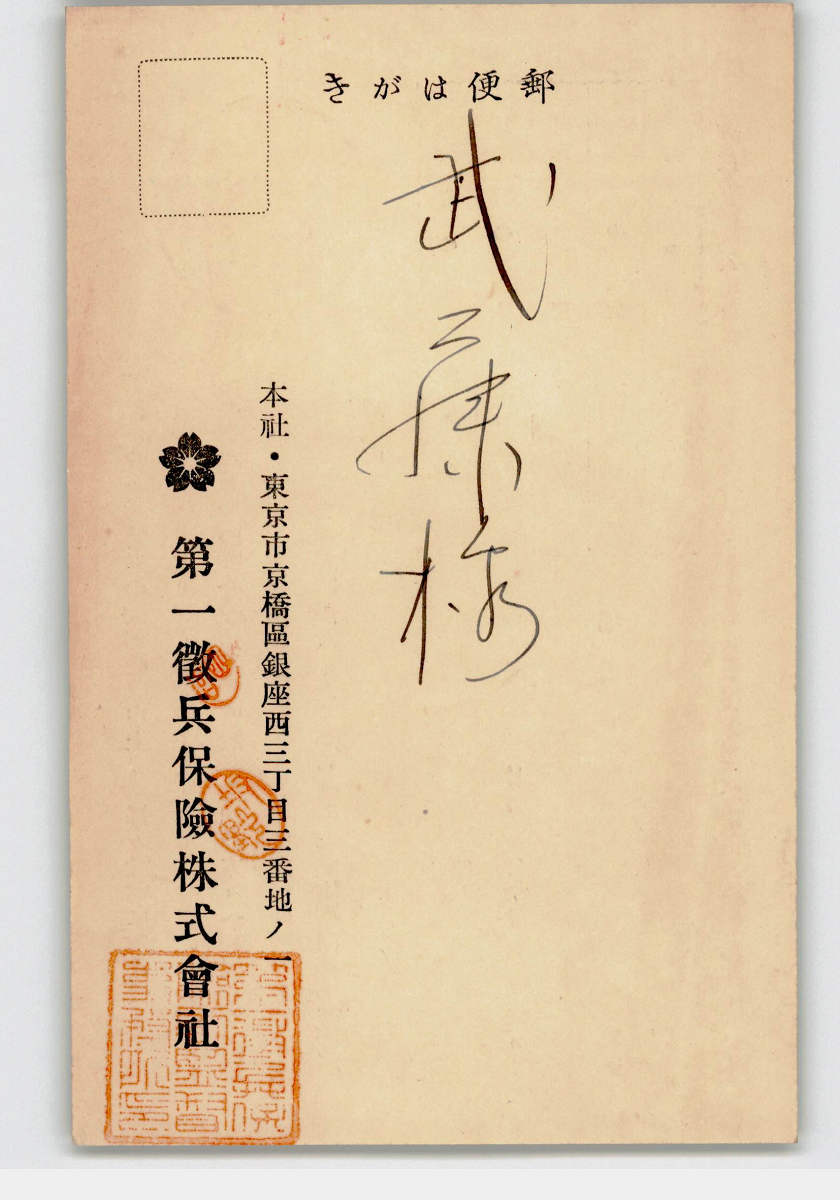 郵便はがき
武藤様
本社・東京市京橋區銀座西三丁目三番地ノ一
第一徴兵保險株式會社